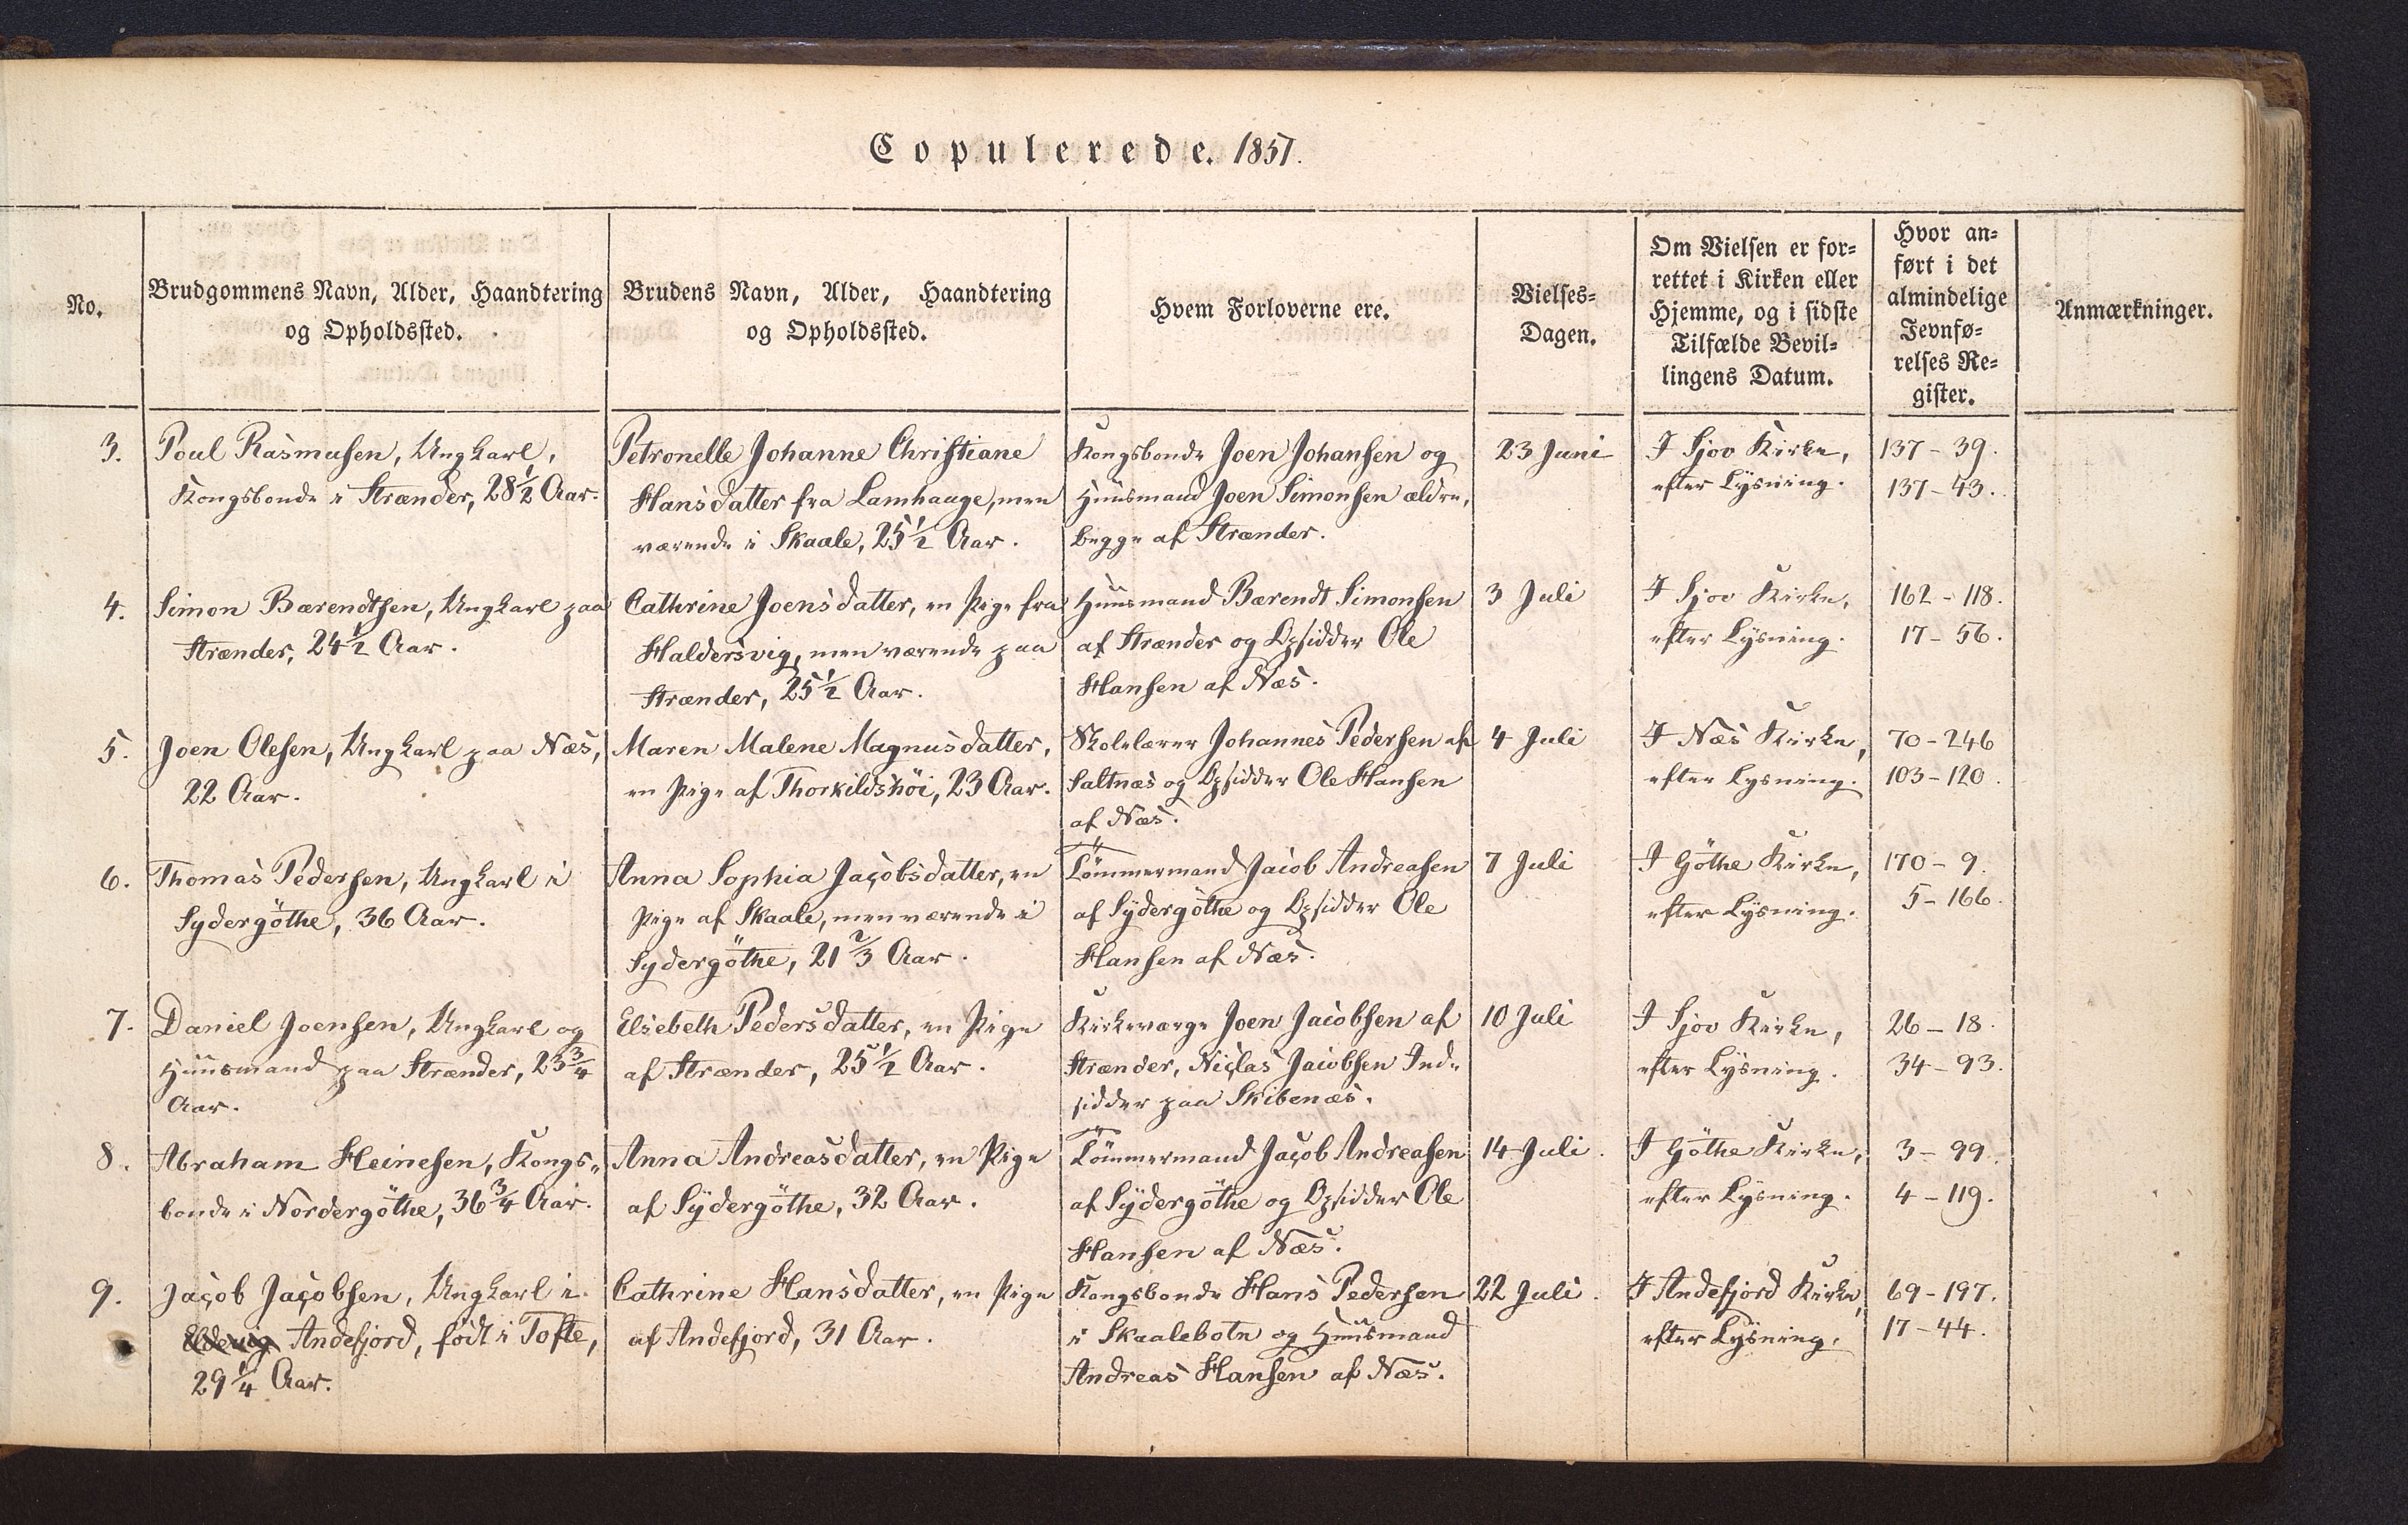 Copulerede. 1851.
No.
Brudgommens Navn, Alder, Haandtering
og Opholdssted.
Brudens Navn, Alder, Haandtering
og Opholdssted.
Hvem Forloverne ere.
Vielses-
Dagen.
Om Vielsen er for-
rettet i Kirken eller
Hjemme, og i sidste
Tilfælde Bevil-
lingens Datum.
Hvor an-
ført i det
almindelige
Jevnfø-
relses Re-
gister.
Anmærkninger.
3.
Poul Rasmusen, Ungkarl,
Kongsbonde i Strænder, 28 1/2 Aar.
Petronelle Johanne Christiane
Hansdatter fra Lamhauge, men
værende i Skaale, 25 1/2 Aar.
Kongsbonde Joen Johansen og
Huusmand Joen Simonsen ældre,
begge af Strænder.
23 Juni
I Sjov Kirke,
efter Lysning.
137 - 39.
137 - 43.
4.
Simon Bærendtsen, Ungkarl paa
Strænder, 24 1/2 Aar.
Cathrine Joensdatter, en Pige fra
Haldersvig, men værende paa
Strænder, 25 1/2 Aar.
Huusmand Bærendt Simonsen
af Strænder og Opsidder Ole
Hansen af Næs.
3 Juli
I Sjov Kirke,
efter Lysning.
162 - 118.
17 - 56.
5.
Joen Olesen, Ungkarl paa Næs,
22 Aar.
Maren Malene Magnusdatter,
en Pige af Thorkildshöi, 23 Aar.
Skolelærer Johannes Pedersen af
Saltnæs og Opsidder Ole Hansen
af Næs.
4 Juli
I Næs Kirke,
efter Lysning.
70 - 246
103 - 120.
6.
Thomas Pedersen, Ungkarl i
Sydergöthe, 36 Aar.
Anna Sophia Jacobsdatter, en
Pige af Skaale, men værende i
Sydergöthe, 21 2/3 Aar.
Tömmermand Jacob Andreasen
af Sydergöthe og Opsidder Ole
Hansen af Næs.
7 Juli
I Göthe Kirke,
efter Lysning.
170 - 9.
5 - 166.
7.
Daniel Joensen, Ungkarl og
Huusmand paa Strænder, 23 3/4
Aar.
Elsebeth Pedersdatter, en Pige
af Strænder, 25 1/2 Aar.
Kirkeværge Joen Jacobsen af
Strænder, Niclas Jacobsen Ind-
sidder paa Skibenæs.
10 Juli
I Sjov Kirke,
efter Lysning.
26 - 18.
34 - 93.
8.
Abraham Heinesen, Kongs-
bonde i Nordergöthe, 36 3/4 Aar.
Anna Andreasdatter, en Pige
af Sydergöthe, 32 Aar.
Tömmermand Jacob Andreasen
af Sydergöthe og Opsidder Ole
Hansen af Næs.
14 Juli.
I Göthe Kirke,
efter Lysning.
3 - 99.
4 - 119.
9.
Jacob Jacobsen, Ungkarl i
Andefjord, födt i Tofte,
29 1/4 Aar.
Cathrine Hansdatter, en Pige
af Andefjord, 31 Aar.
Kongsbonde Hans Pedersen
i Skaalebotn og Huusmand
Andreas Hansen af Næs.
22 Juli.
I Andefjord Kirke,
efter Lysning.
69 - 197.
17 - 44.